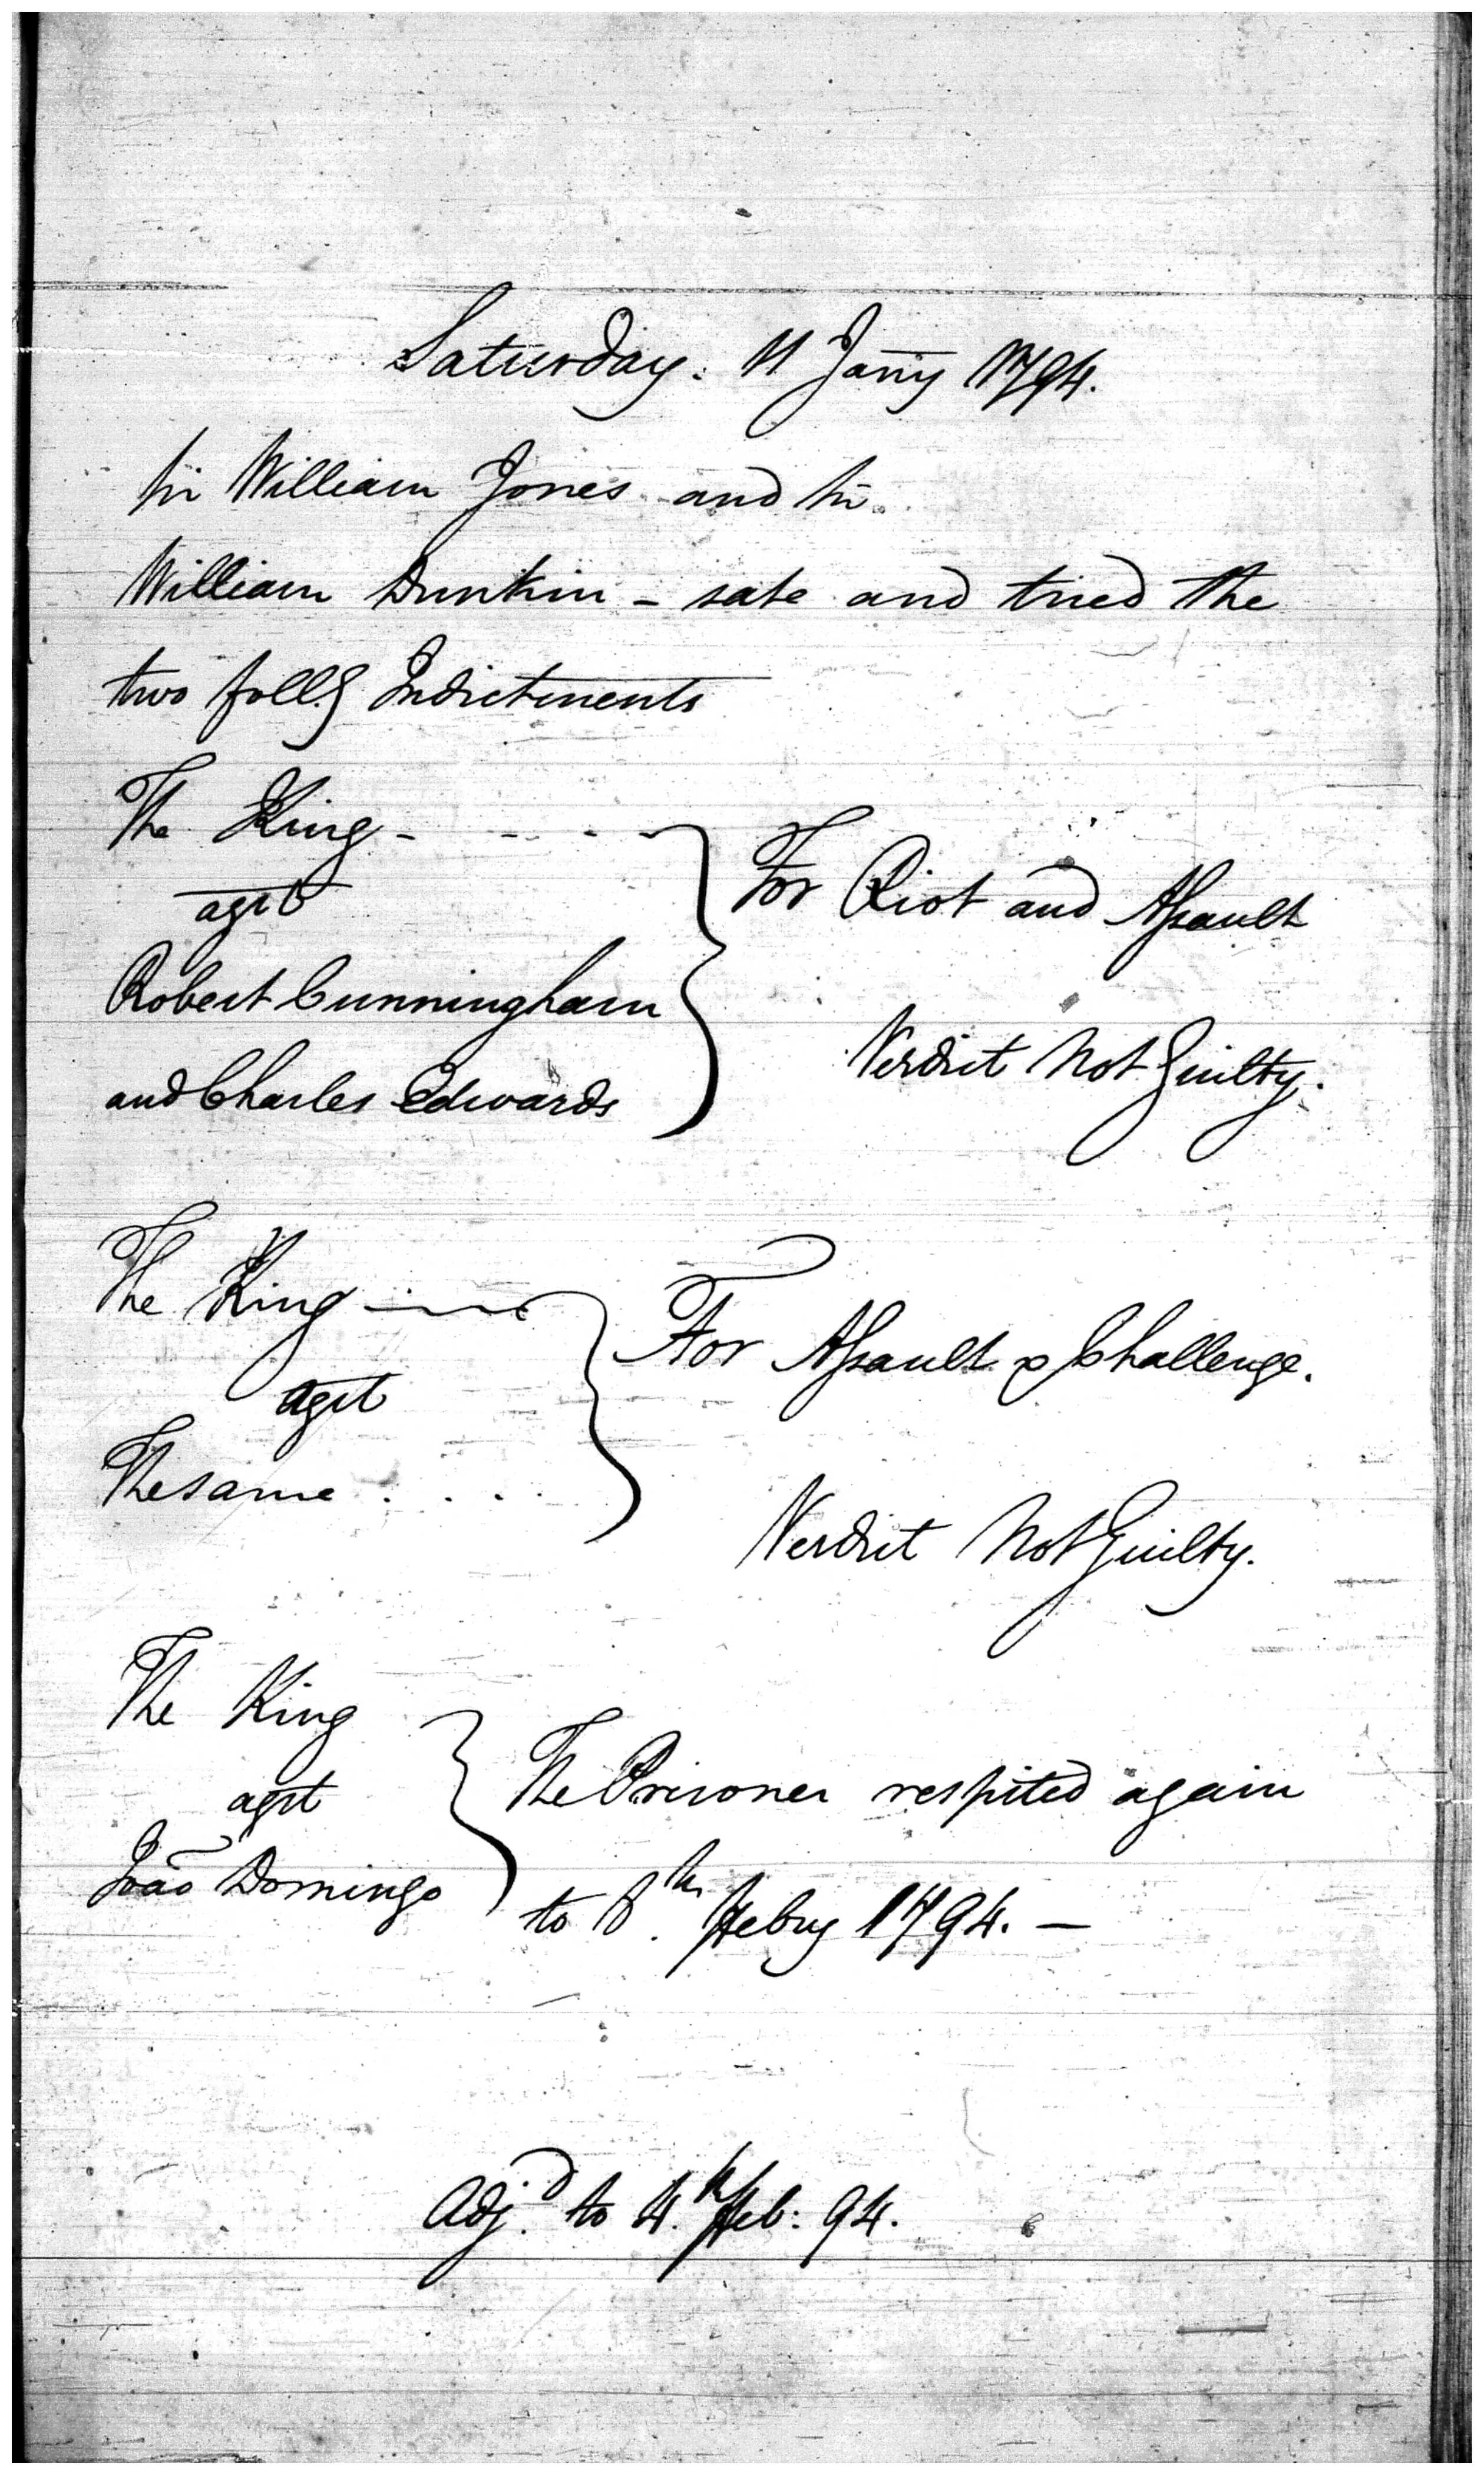 Saturday. 11 Jan̄y 1794.
Sir William Jones and Sir
William Dunkin - sate and tried the
two follg Indictments
The King - - - -
agst
Robert Cunningham
and Charles Edwards
For Riot and Assault
Verdict Not Guilty.
The King
agst
The same . . . .
For Assault & Challenge.
Verdict Not Guilty.
The King
agst
João Domingo
The Prisoner respited again
to 8th. Feby 1794. —
Adj.d to 4.th Feb: 94.